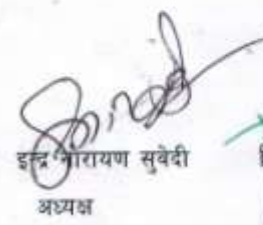 इन्द्र नारायण सुवेदी
अध्यक्ष